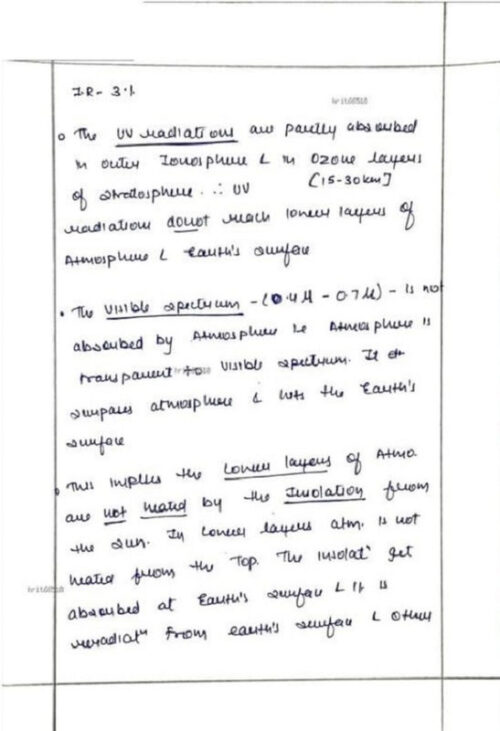 IR- 3%
hrito8518
o The UV radiations are partly absorbed
in outer Ionosphere & in Ozone layers
of stratosphere. ∴ UV [15-30km]
radiations donot reach lower layers of
Atmosphere & Earth's surface
• The Visible spectrum - (0.4μ - 0.7μ) - is not
absorbed by Atmosphere ie Atmosphere is
transparent to visible spectrum. It
surpases atmosphere & hits the Earth's
surface
• This implies the Lower layers of Atmo.
are not heated by the Insolation from
the sun. In Lower layers atm. is not
heated from the Top. The insolatⁿ get
absorbed at Earth's surface & It is
reradiatⁿ from earth's surface & other